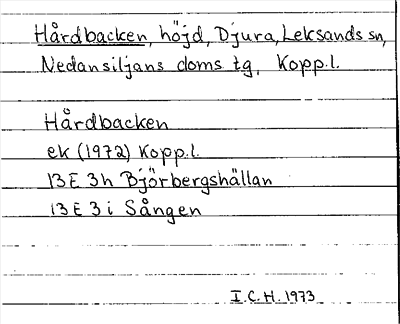 Hårdbacken, höjd, Djura, Leksands sn,
Nedansiljans doms tg, Kopp.l.
Hårdbacken
ek (1972) Kopp.l.
13E 3h Björbergshällan
13E 3i Sången
I.C.H. 1973